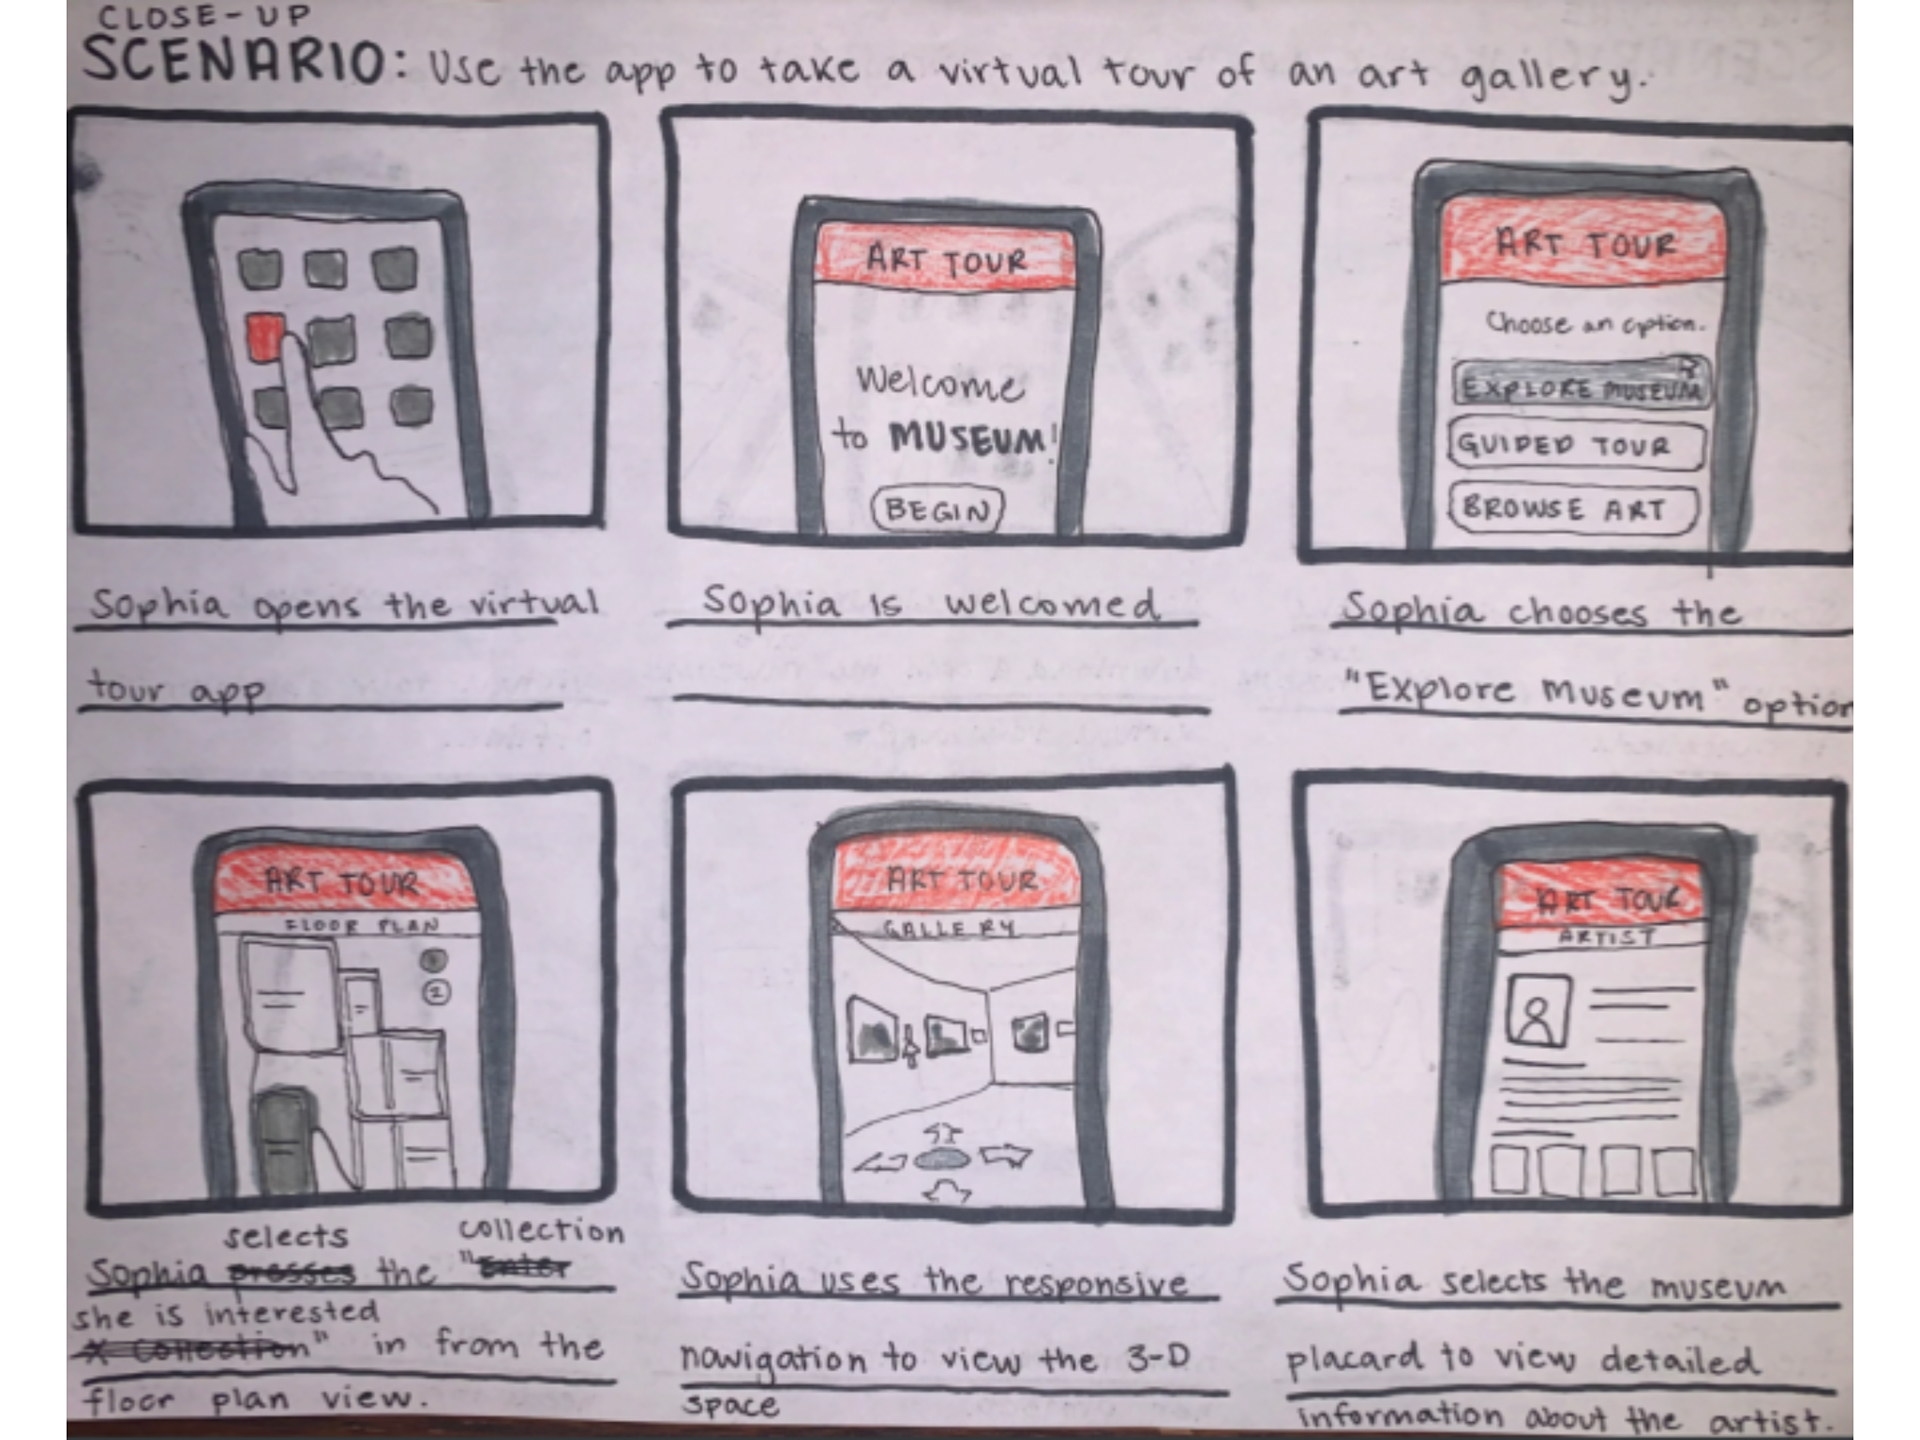 CLOSE-UP
SCENARIO: Use the app to take a virtual tour of an art gallery.
ART TOUR
Welcome
to MUSEUM!
BEGIN
ART TOUR
Choose an option.
EXPLORE MUSEUM
GUIDED TOUR
BROWSE ART
Sophia opens the virtual
tour app
Sophia is welcomed
Sophia chooses the
"Explore Museum" option
ART TOUR
FLOOR PLAN
2
ART TOUR
GALLERY
ART TOUR
ARTIST
selects collection
Sophia presses the "Enter
she is interested
X Collection" in from the
floor plan view.
Sophia uses the responsive
navigation to view the 3-D
space
Sophia selects the museum
placard to view detailed
information about the artist.